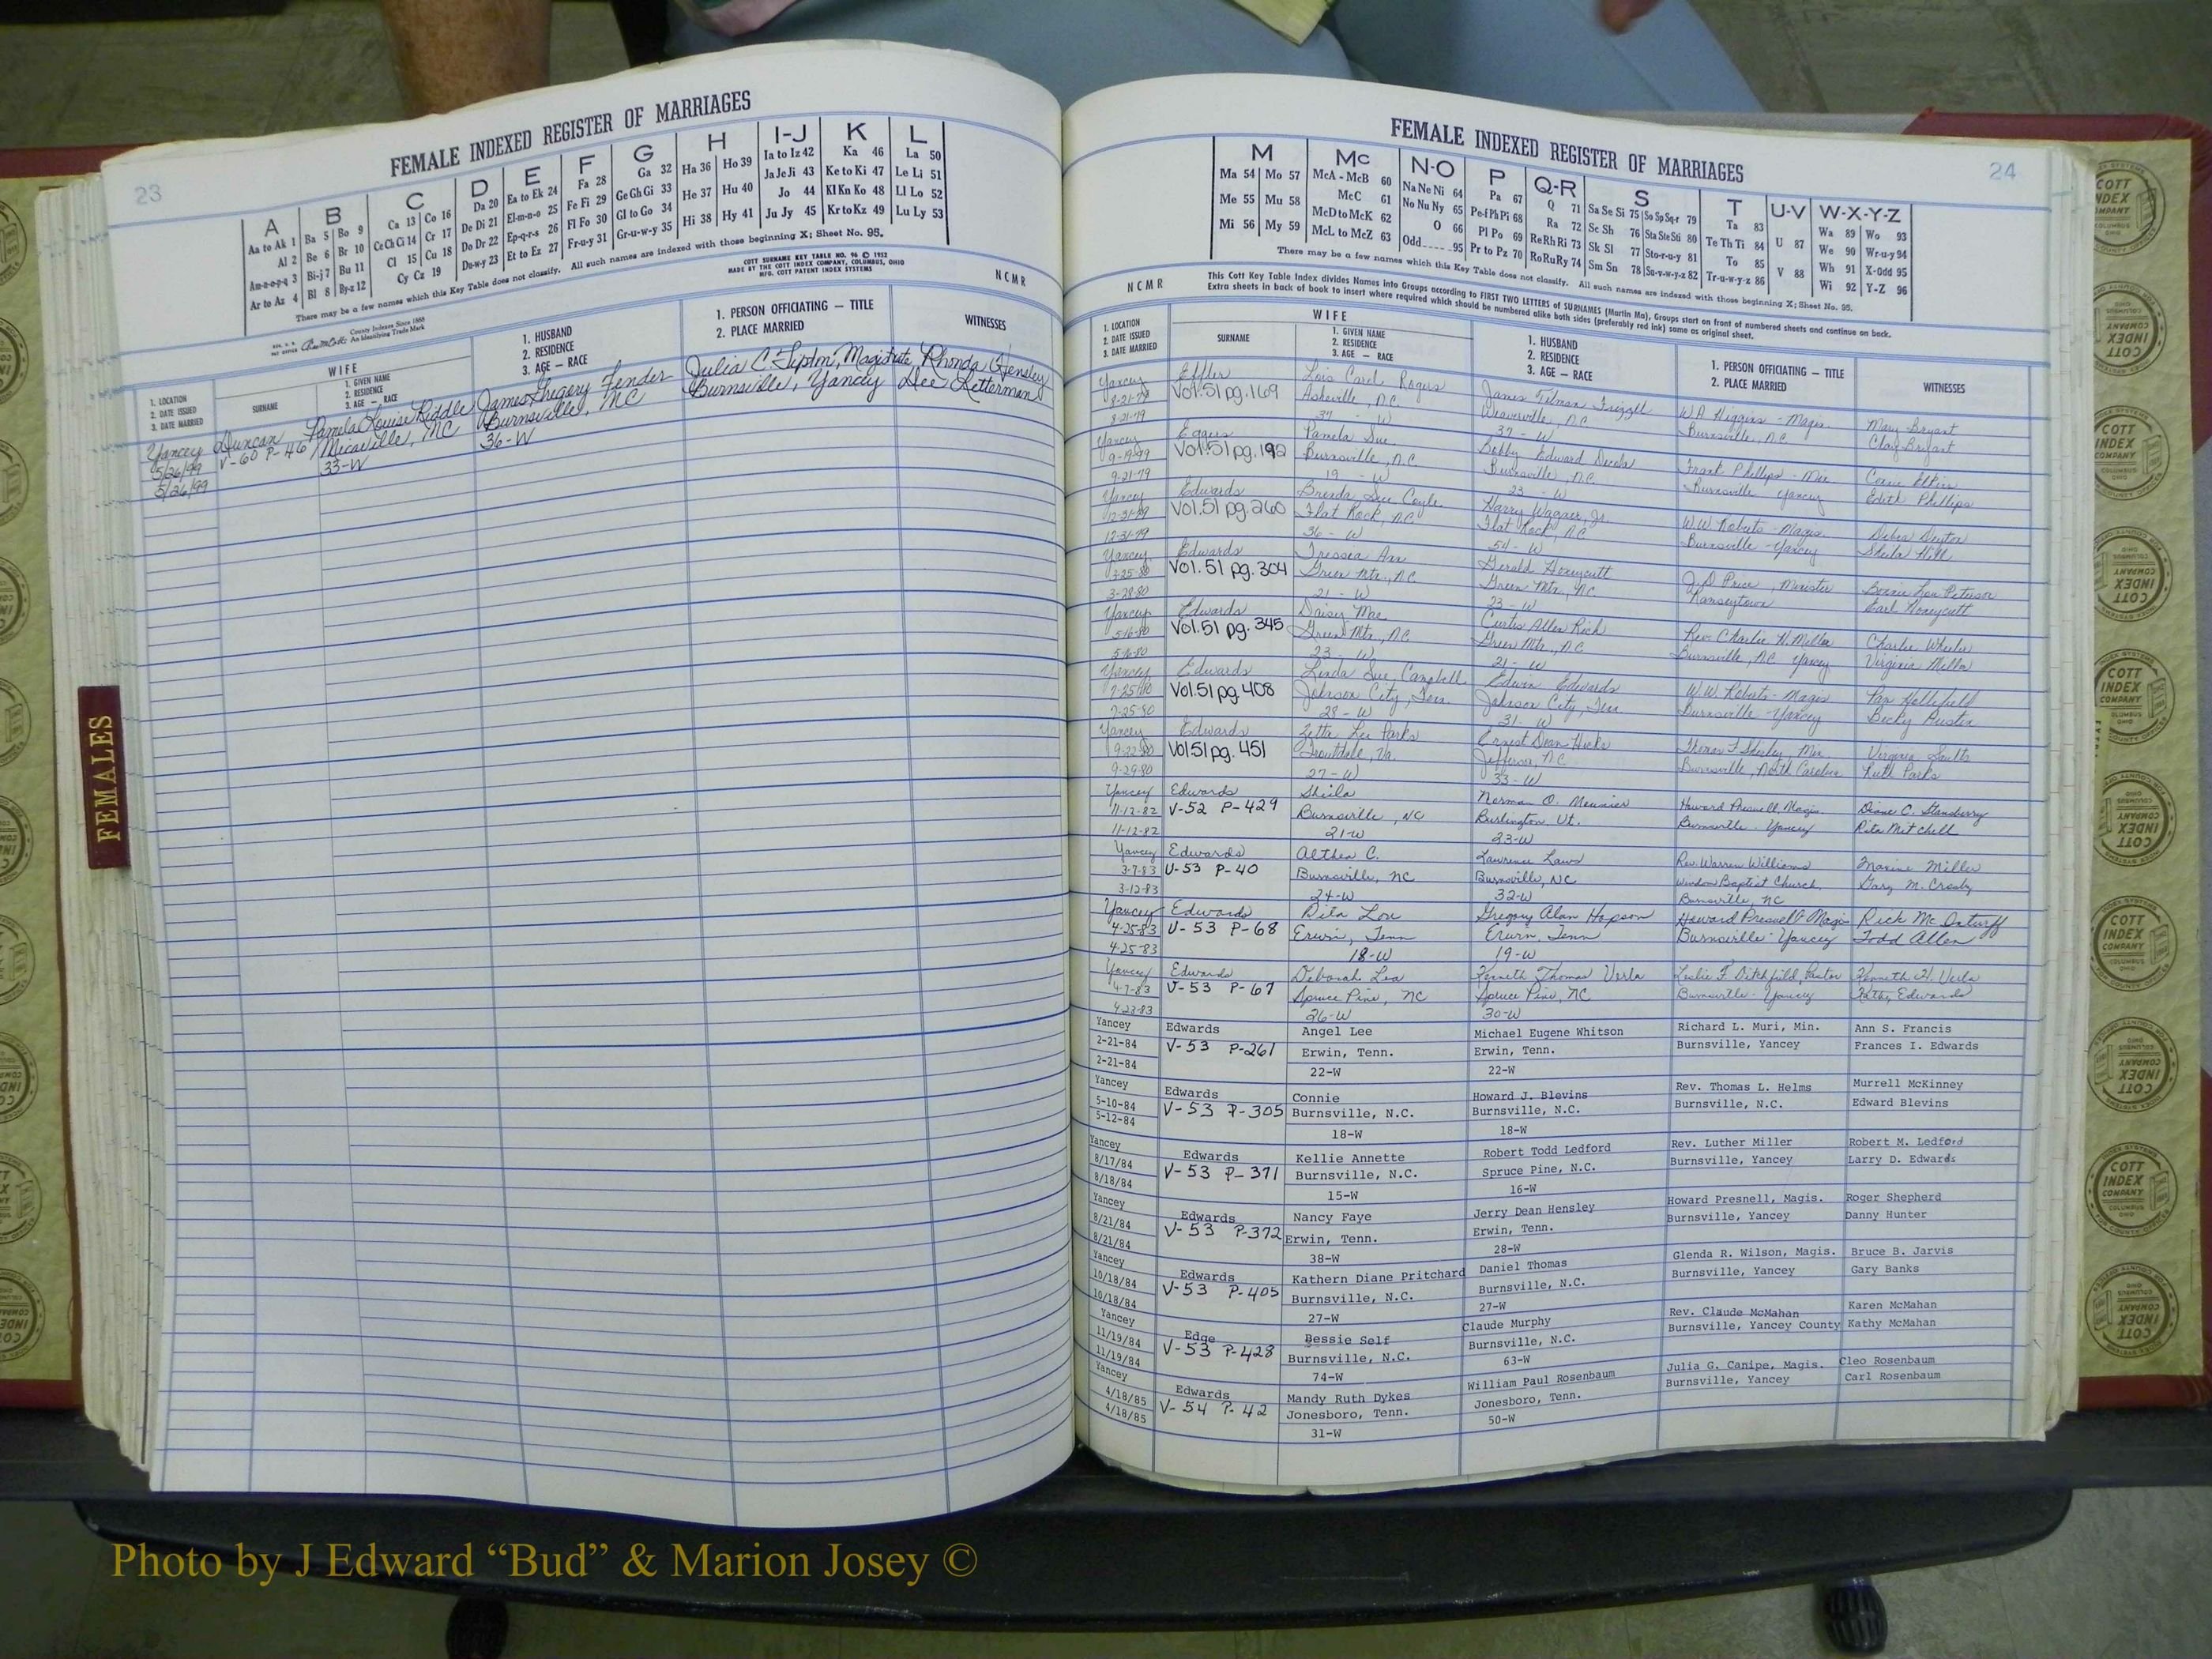 23
FEMALE INDEXED REGISTER OF MARRIAGES
A B C D E F G H I-J K L
Aa to Ak 1 Ba 5 Bo 9 Ca 13 Co 16 Da 20 Ea to Ek 24 Fa 28 Ga 32 Ha 36 Ho 39 Ia to Iz 42 Ka 46 La 50
Al 2 Be 6 Br 10 Ce Ch Ci 14 Cr 17 De Di 21 El-m-n-o 25 Fe Fi 29 Ge Gh Gi 33 He 37 Hu 40 Ja Je Ji 43 Ke to Ki 47 Le Li 51
Am-n-o-p-q 3 Bi-j 7 Bu 11 Cl 15 Cu 18 Do Dr 22 Ep-q-r-s 26 Fl Fo 30 Gl to Go 34 Hi 38 Hy 41 Jo 44 Kl Kn Ko 48 Ll Lo 52
Ar to Az 4 Bl 8 By-z 12 Cy Cz 19 Du-w-y 23 Et to Ez 27 Fr-u-y 31 Gr-u-w-y 35 Ju Jy 45 Kr to Kz 49 Lu Ly 53
There may be a few names which this Key Table does not classify. All such names are indexed with those beginning X; Sheet No. 95.
County Indexes Since 1888
An Identifying Trade Mark
COTT SURNAME KEY TABLE NO. 96 © 1952
MADE BY THE COTT INDEX COMPANY, COLUMBUS, OHIO
MFG. COTT PATENT INDEX SYSTEMS
NCMR
1. LOCATION
2. DATE ISSUED
3. DATE MARRIED
WIFE
SURNAME
1. GIVEN NAME
2. RESIDENCE
3. AGE — RACE
1. HUSBAND
2. RESIDENCE
3. AGE — RACE
1. PERSON OFFICIATING — TITLE
2. PLACE MARRIED
WITNESSES
Yancey Duncan Pamela Louise Riddle James Gregory Fender Julia C. Tipton, Magistrate Rhonda Hensley
5/26/99 V-60 P-46 Micaville, NC Burnsville, NC Burnsville, Yancey Dee Letterman
5/26/99 33-W 36-W
FEMALES
24
FEMALE INDEXED REGISTER OF MARRIAGES
M Mc N-O P Q-R S T U-V W-X-Y-Z
Ma 54 Mo 57 McA - McB 60 Na Ne Ni 64 Pa 67 Q 71 Sa Se Si 75 So Sp Sq-r 79 Ta 83 Wa 89 Wo 93
Me 55 Mu 58 McC 61 No Nu Ny 65 Pe-f Ph Pi 68 Ra 72 Sc Sh 76 Sta Ste Sti 80 Te Th Ti 84 U 87 We 90 Wr-u-y 94
Mi 56 My 59 McD to McK 62 O 66 Pl Po 69 Re Rh Ri 73 Sk Sl 77 Sto-r-u-y 81 To 85 Wh 91 X-Odd 95
McL to McZ 63 Odd 95 Pr to Pz 70 Ro Ru Ry 74 Sm Sn 78 Su-v-w-y-z 82 Tr-u-w-y-z 86 V 88 Wi 92 Y-Z 96
There may be a few names which this Key Table does not classify. All such names are indexed with those beginning X; Sheet No. 95.
NCMR
This Cott Key Table Index divides Names into Groups according to FIRST TWO LETTERS of SURNAMES (Martin Ma), Groups start on front of numbered sheets and continue on back.
Extra sheets in back of book to insert where required which should be numbered alike both sides (preferably red ink) same as original sheet.
1. LOCATION
2. DATE ISSUED
3. DATE MARRIED
WIFE
SURNAME
1. GIVEN NAME
2. RESIDENCE
3. AGE — RACE
1. HUSBAND
2. RESIDENCE
3. AGE — RACE
1. PERSON OFFICIATING — TITLE
2. PLACE MARRIED
WITNESSES
Yancey Effler Lois Carol Rogers James Tilman Frizzell W.A. Higgins - Magis Mary Bryant
8-21-79 Vol.51 pg.169 Asheville, N.C. Weaverville, N.C. Burnsville, N.C. Clay Bryant
8-21-79 37 - W 37 - W
Yancey Pamela Sue Bobby Edward Frank Phillips - Min.
9-19-79 Vol.51 pg.192 Burnsville, N.C. Burnsville, N.C. Burnsville Yancey Edith Phillips
9-21-79 19 - W 23 - W
Yancey Edwards Brenda Sue Coyle Harry Wagner, Jr. W.W. Roberts - Magis Debra Deyton
12-31-79 Vol.51 pg.260 Flat Rock, N.C. Flat Rock, N.C. Burnsville - Yancey Sheila Hill
12-31-79 36 - W 54 - W
Yancey Edwards Tressea Ann Gerald Honeycutt J.D. Price, Minister Bonnie Lou Peterson
3-25-80 Vol. 51 pg. 304 Green Mtn., N.C. Green Mtn., N.C. Ramseytown Earl Honeycutt
3-28-80 21 - W 23 - W
Yancey Edwards Daisy Mae Curtis Allen Rich Rev. Charlie H. Miller Charlie Wheeler
5-16-80 Vol.51 pg. 345 Green Mtn., N.C. Green Mtn., N.C. Burnsville, N.C. Yancey Virginia Miller
5-16-80 23 - W 21 - W
Yancey Edwards Linda Sue Campbell Edwin Edwards W.W. Roberts - Magis Pam Hollifield
7-25-80 Vol.51 pg.408 Johnson City, Tenn. Johnson City, Tenn. Burnsville - Yancey Becky Buster
7-25-80 28 - W 31 - W
Yancey Edwards Zetta Lee Parks Ernest Dean Hicks Virginia Saults
9-22-80 Vol51 pg. 451 Troutdale, Va. Jefferson, N.C. Burnsville, North Carolina Ruth Parks
9-29-80 27 - W 33 - W
Yancey Edwards Sheila Norman O. Meunier Howard Presnell, Magis. Diane C. Stansberry
11-12-82 V-52 P-429 Burnsville, NC Burlington Vt. Burnsville - Yancey Rita Mitchell
11-12-82 21-W 23-W
Yancey Edwards Althea C. Lawrence Laws Rev. Warren Williams Maxine Miller
3-7-83 V-53 P-40 Burnsville, NC Burnsville, NC Windom Baptist Church Gary M. Crosby
3-12-83 24-W 32-W Burnsville, NC
Yancey Edwards Rita Lou Gregory Alan Hopson Howard Presnell Magis Rick McInturff
4-25-83 V-53 P-68 Erwin, Tenn Erwin, Tenn Burnsville - Yancey Todd Allen
4-25-83 18-W 19-W
Yancey Edwards Deborah Lea Kenneth Thomas Verla Leslie F. Ditchfield, Pastor Kenneth H. Verla
4-7-83 V-53 P-67 Spruce Pine, NC Spruce Pine, NC Burnsville - Yancey Kathy Edwards
4-23-83 26-W 30-W
Yancey Edwards Angel Lee Michael Eugene Whitson Richard L. Muri, Min. Ann S. Francis
2-21-84 V-53 P-261 Erwin, Tenn. Erwin, Tenn. Burnsville, Yancey Frances I. Edwards
2-21-84 22-W 22-W
Yancey Edwards Connie Howard J. Blevins Rev. Thomas L. Helms Murrell McKinney
5-10-84 V-53 P-305 Burnsville, N.C. Burnsville, N.C. Burnsville, N.C. Edward Blevins
5-12-84 18-W 18-W
Yancey Edwards Kellie Annette Robert Todd Ledford Rev. Luther Miller Robert M. Ledford
8/17/84 V-53 P-371 Burnsville, N.C. Spruce Pine, N.C. Burnsville, Yancey Larry D. Edwards
8/18/84 15-W 16-W
Yancey Edwards Nancy Faye Jerry Dean Hensley Howard Presnell, Magis. Roger Shepherd
8/21/84 V-53 P-372 Erwin, Tenn. Erwin, Tenn. Burnsville, Yancey Danny Hunter
8/21/84 38-W 28-W
Yancey Edwards Kathern Diane Pritchard Daniel Thomas Glenda R. Wilson, Magis. Bruce B. Jarvis
10/18/84 V-53 P-405 Burnsville, N.C. Burnsville, N.C. Burnsville, Yancey Gary Banks
10/18/84 27-W 27-W
Yancey Edge Bessie Self Claude Murphy Rev. Claude McMahan Karen McMahan
11/19/84 V-53 P-428 Burnsville, N.C. Burnsville, N.C. Burnsville, Yancey County Kathy McMahan
11/19/84 74-W 63-W
Yancey Edwards Mandy Ruth Dykes William Paul Rosenbaum Julia G. Canipe, Magis. Cleo Rosenbaum
4/18/85 V-54 P-42 Jonesboro, Tenn. Jonesboro, Tenn. Burnsville, Yancey Carl Rosenbaum
4/18/85 31-W 50-W
COTT INDEX COMPANY COLUMBUS OHIO
Photo by J Edward “Bud” & Marion Josey ©